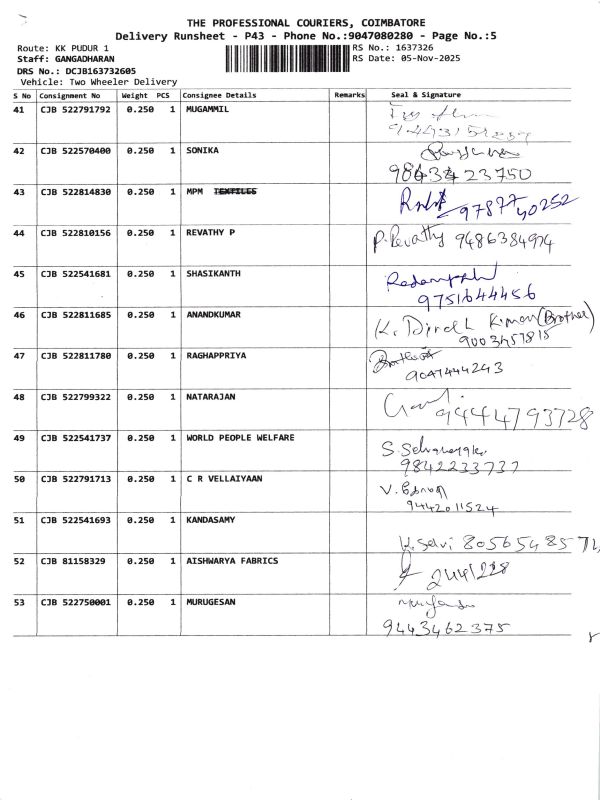 THE PROFESSIONAL COURIERS, COIMBATORE
Delivery Runsheet - P43 - Phone No.:9047080280 - Page No.:5
Route: KK PUDUR 1 RS No.: 1637326
Staff: GANGADHARAN RS Date: 05-Nov-2025
DRS No.: DCJB163732605
Vehicle: Two Wheeler Delivery
S No Consignment No Weight PCS Consignee Details Remarks Seal & Signature
41 CJB 522791792 0.250 1 MUGAMMIL
42 CJB 522570400 0.250 1 SONIKA
98434 23750
43 CJB 522814830 0.250 1 MPM TEXTILES
97877 40252
44 CJB 522810156 0.250 1 REVATHY P
P. Revathy
45 CJB 522541681 0.250 1 SHASIKANTH
9751644456
46 CJB 522811685 0.250 1 ANANDKUMAR
(Brother)
47 CJB 522811780 0.250 1 RAGHAPPRIYA
9047444243
48 CJB 522799322 0.250 1 NATARAJAN
9444793728
49 CJB 522541737 0.250 1 WORLD PEOPLE WELFARE
9842233737
50 CJB 522791713 0.250 1 C R VELLAIYAAN
9442011524
51 CJB 522541693 0.250 1 KANDASAMY
52 CJB 81158329 0.250 1 AISHWARYA FABRICS
2441228
53 CJB 522750001 0.250 1 MURUGESAN
9443462375